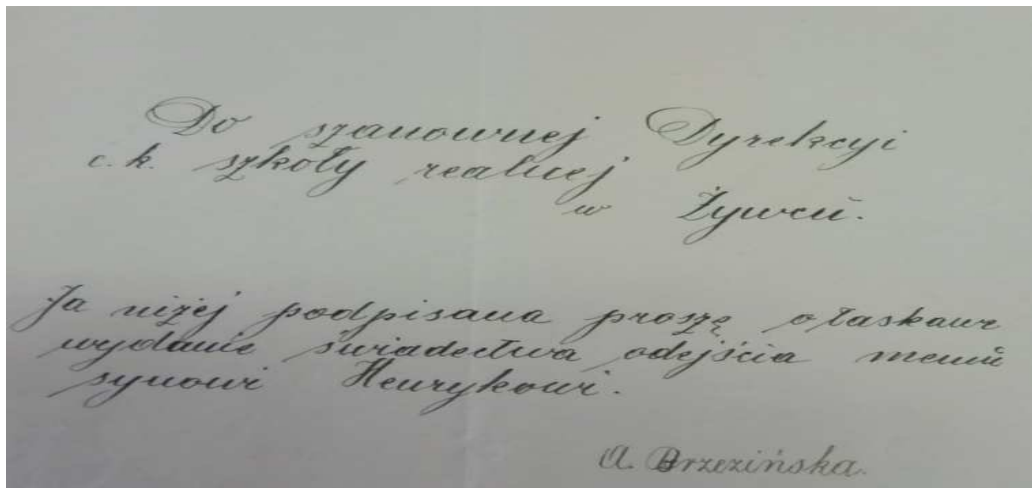 Do szanownej Dyrekcyi
c. k. szkoły realnej
w Żywcu.
Ja niżej podpisana proszę o łaskawe
wydanie świadectwa odejścia memu
synowi Henrykowi.
A. Brzezińska.